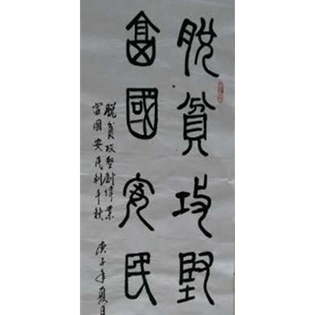 脫貧攻堅
富國安民
脫貧攻堅創偉業
富國安民利千秋
庚子年夏月